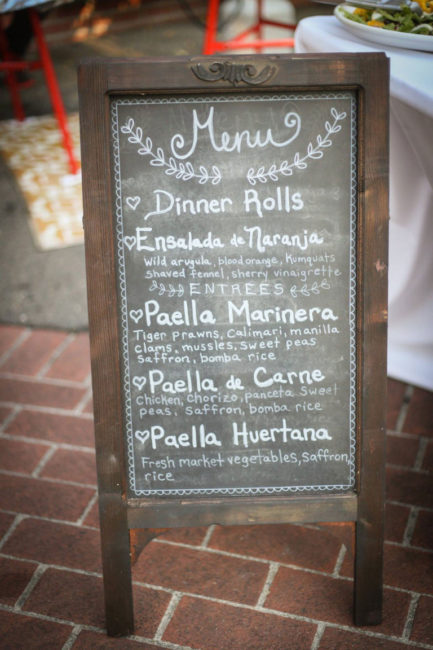 Menu
Dinner Rolls
Ensalada de Naranja
Wild arugula, blood orange, Kumquats
shaved fennel, sherry vinaigrette
ENTREES
Paella Marinera
Tiger prawns, Calimari, manilla
clams, mussles, sweet peas
saffron, bomba rice
Paella de Carne
chicken, Chorizo, panceta sweet
peas, Saffron, bomba rice
Paella Huertana
Fresh market vegetables, saffron,
rice